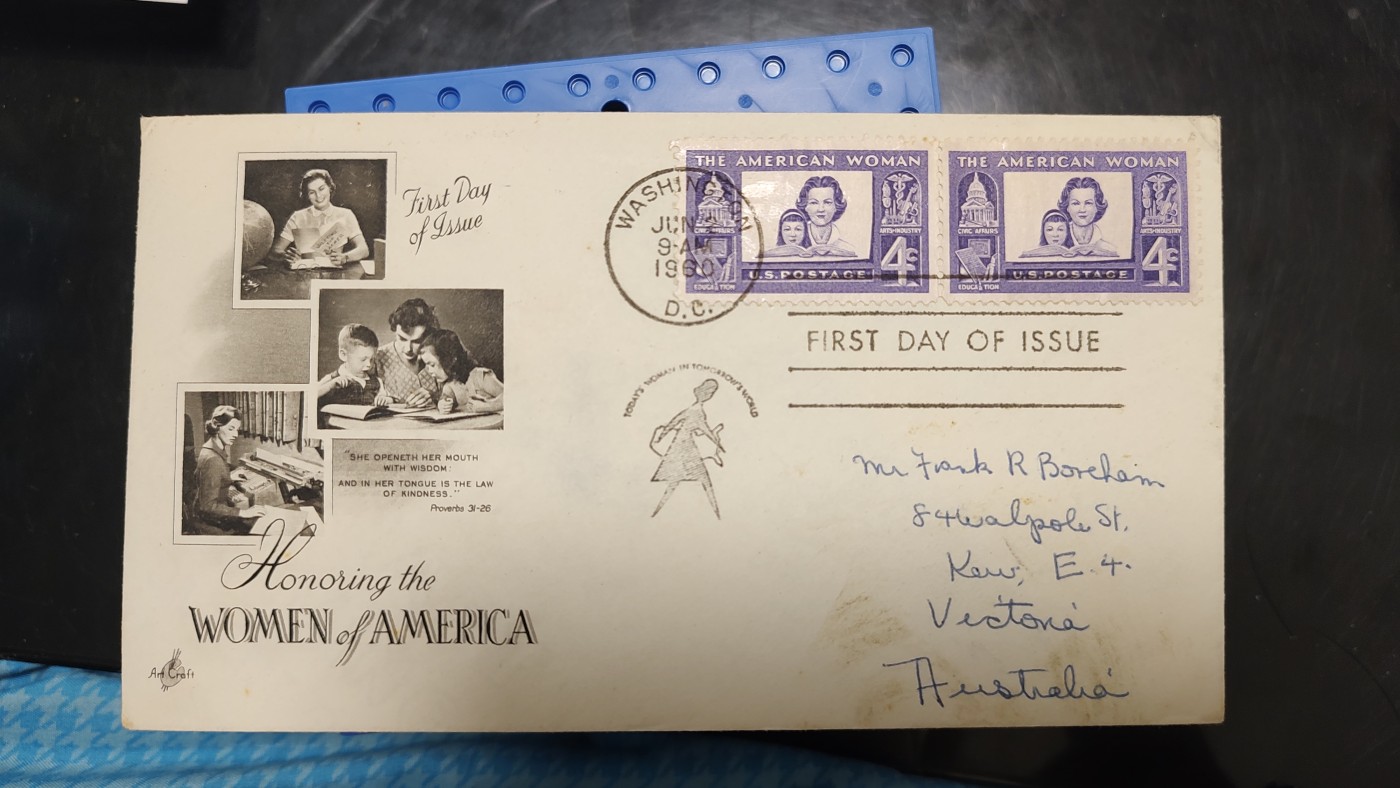 First Day
of Issue
"SHE OPENETH HER MOUTH
WITH WISDOM:
AND IN HER TONGUE IS THE LAW
OF KINDNESS."
Proverbs 31-26
Honoring the
WOMEN of AMERICA
Art Craft
WASHINGTON
JUN
9-AM
1960
D.C.
THE AMERICAN WOMAN
CIVIC AFFAIRS
ARTS-INDUSTRY
EDUCATION
U.S. POSTAGE
4c
THE AMERICAN WOMAN
CIVIC AFFAIRS
ARTS-INDUSTRY
EDUCATION
U.S. POSTAGE
4c
FIRST DAY OF ISSUE
TODAY'S WOMAN IN TOMORROW'S WORLD
Mr Frank R Boreham
84 Walpole St.
Kew, E.4.
Victoria
Australia